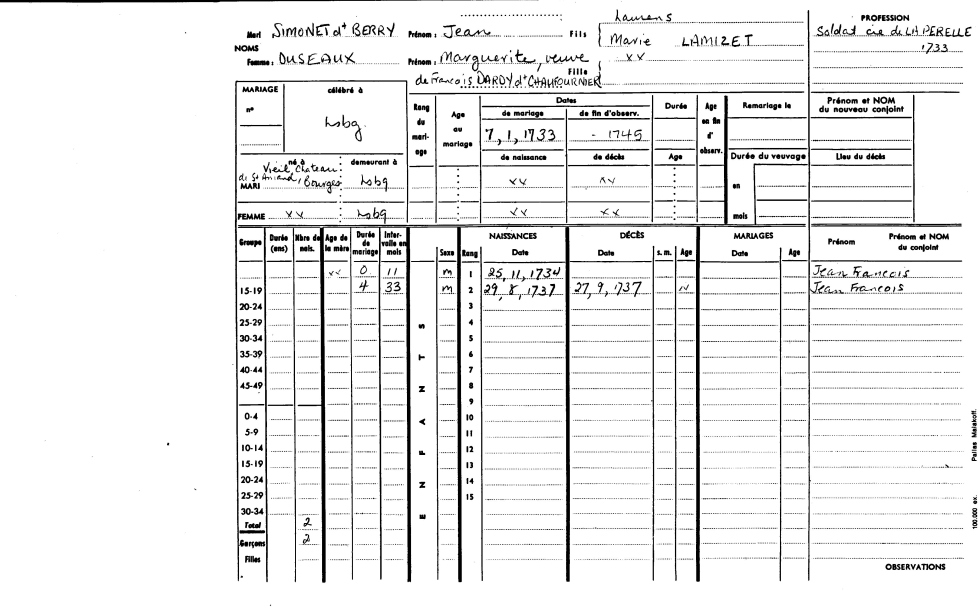 Mari SIMONET dt BERRY Prénom : Jean Fils Laurens
Marie LAMIZET
NOMS
Femme : DUSEAUX Prénom : Marguerite, veuve Fille xx
de Francois DARDY dt CHAUFOURNIER
PROFESSION
Soldat cie de LAPERELLE
1733
MARIAGE célébré à
n°
Lsbg.
Rang du mari- age
Age au mariage
Dates
de mariage de fin d'observ.
7, 1, 1733 - 1745
de naissance de décès
xx xx
xx xx
Durée
Age
Age en fin d' observ.
Remariage le
Durée du veuvage
en
mois
Prénom et NOM du nouveau conjoint
Lieu du décès
né à demeurant à
Vieil Chateau
MARI de St Amand, Bourges Lsbg
FEMME xx Lsbg
Groupe Durée (ans) Nbre de nais. Age de la mère Durée de mariage Inter- valle en mois Sexe Rang NAISSANCES Date DÉCÈS Date s. m. Age MARIAGES Date Age Prénom Prénom et NOM du conjoint
xx 0 11 m 1 25, 11, 1734 Jean Francois
15-19 4 33 m 2 29, 8, 1737 27, 9, 1737 Jean Francois
20-24 3
25-29 4
30-34 5
35-39 6
40-44 7
45-49 8
9
0-4 10
5-9 11
10-14 12
15-19 13
20-24 14
25-29 15
30-34
Total 2
Garçons 2
Filles
ENFANTS
OBSERVATIONS
100.000 ex. Pallas Malakoff.